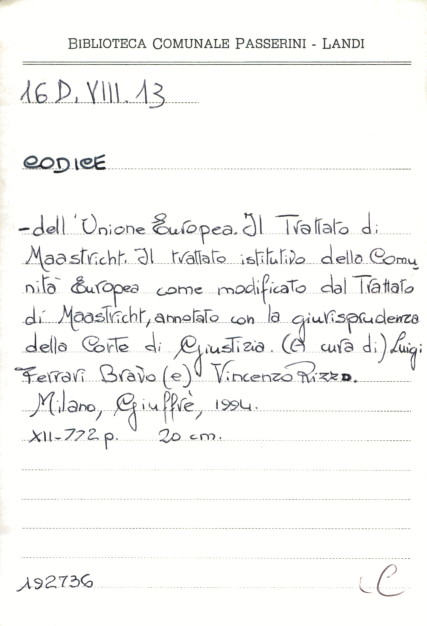 BIBLIOTECA COMUNALE PASSERINI - LANDI
16 D. VIII. 13
CODICE
- dell'Unione Europea. Il Trattato di
Maastricht. Il trattato istitutivo della Comu
nità Europea come modificato dal Trattato
di Maastricht, annotato con la giurisprudenza
della Corte di Giustizia. (A cura di) Luigi
Ferrari Bravo (e) Vincenzo Rizzo.
Milano, Giuffrè, 1994.
XII-772 p. 20 cm.
192736 C